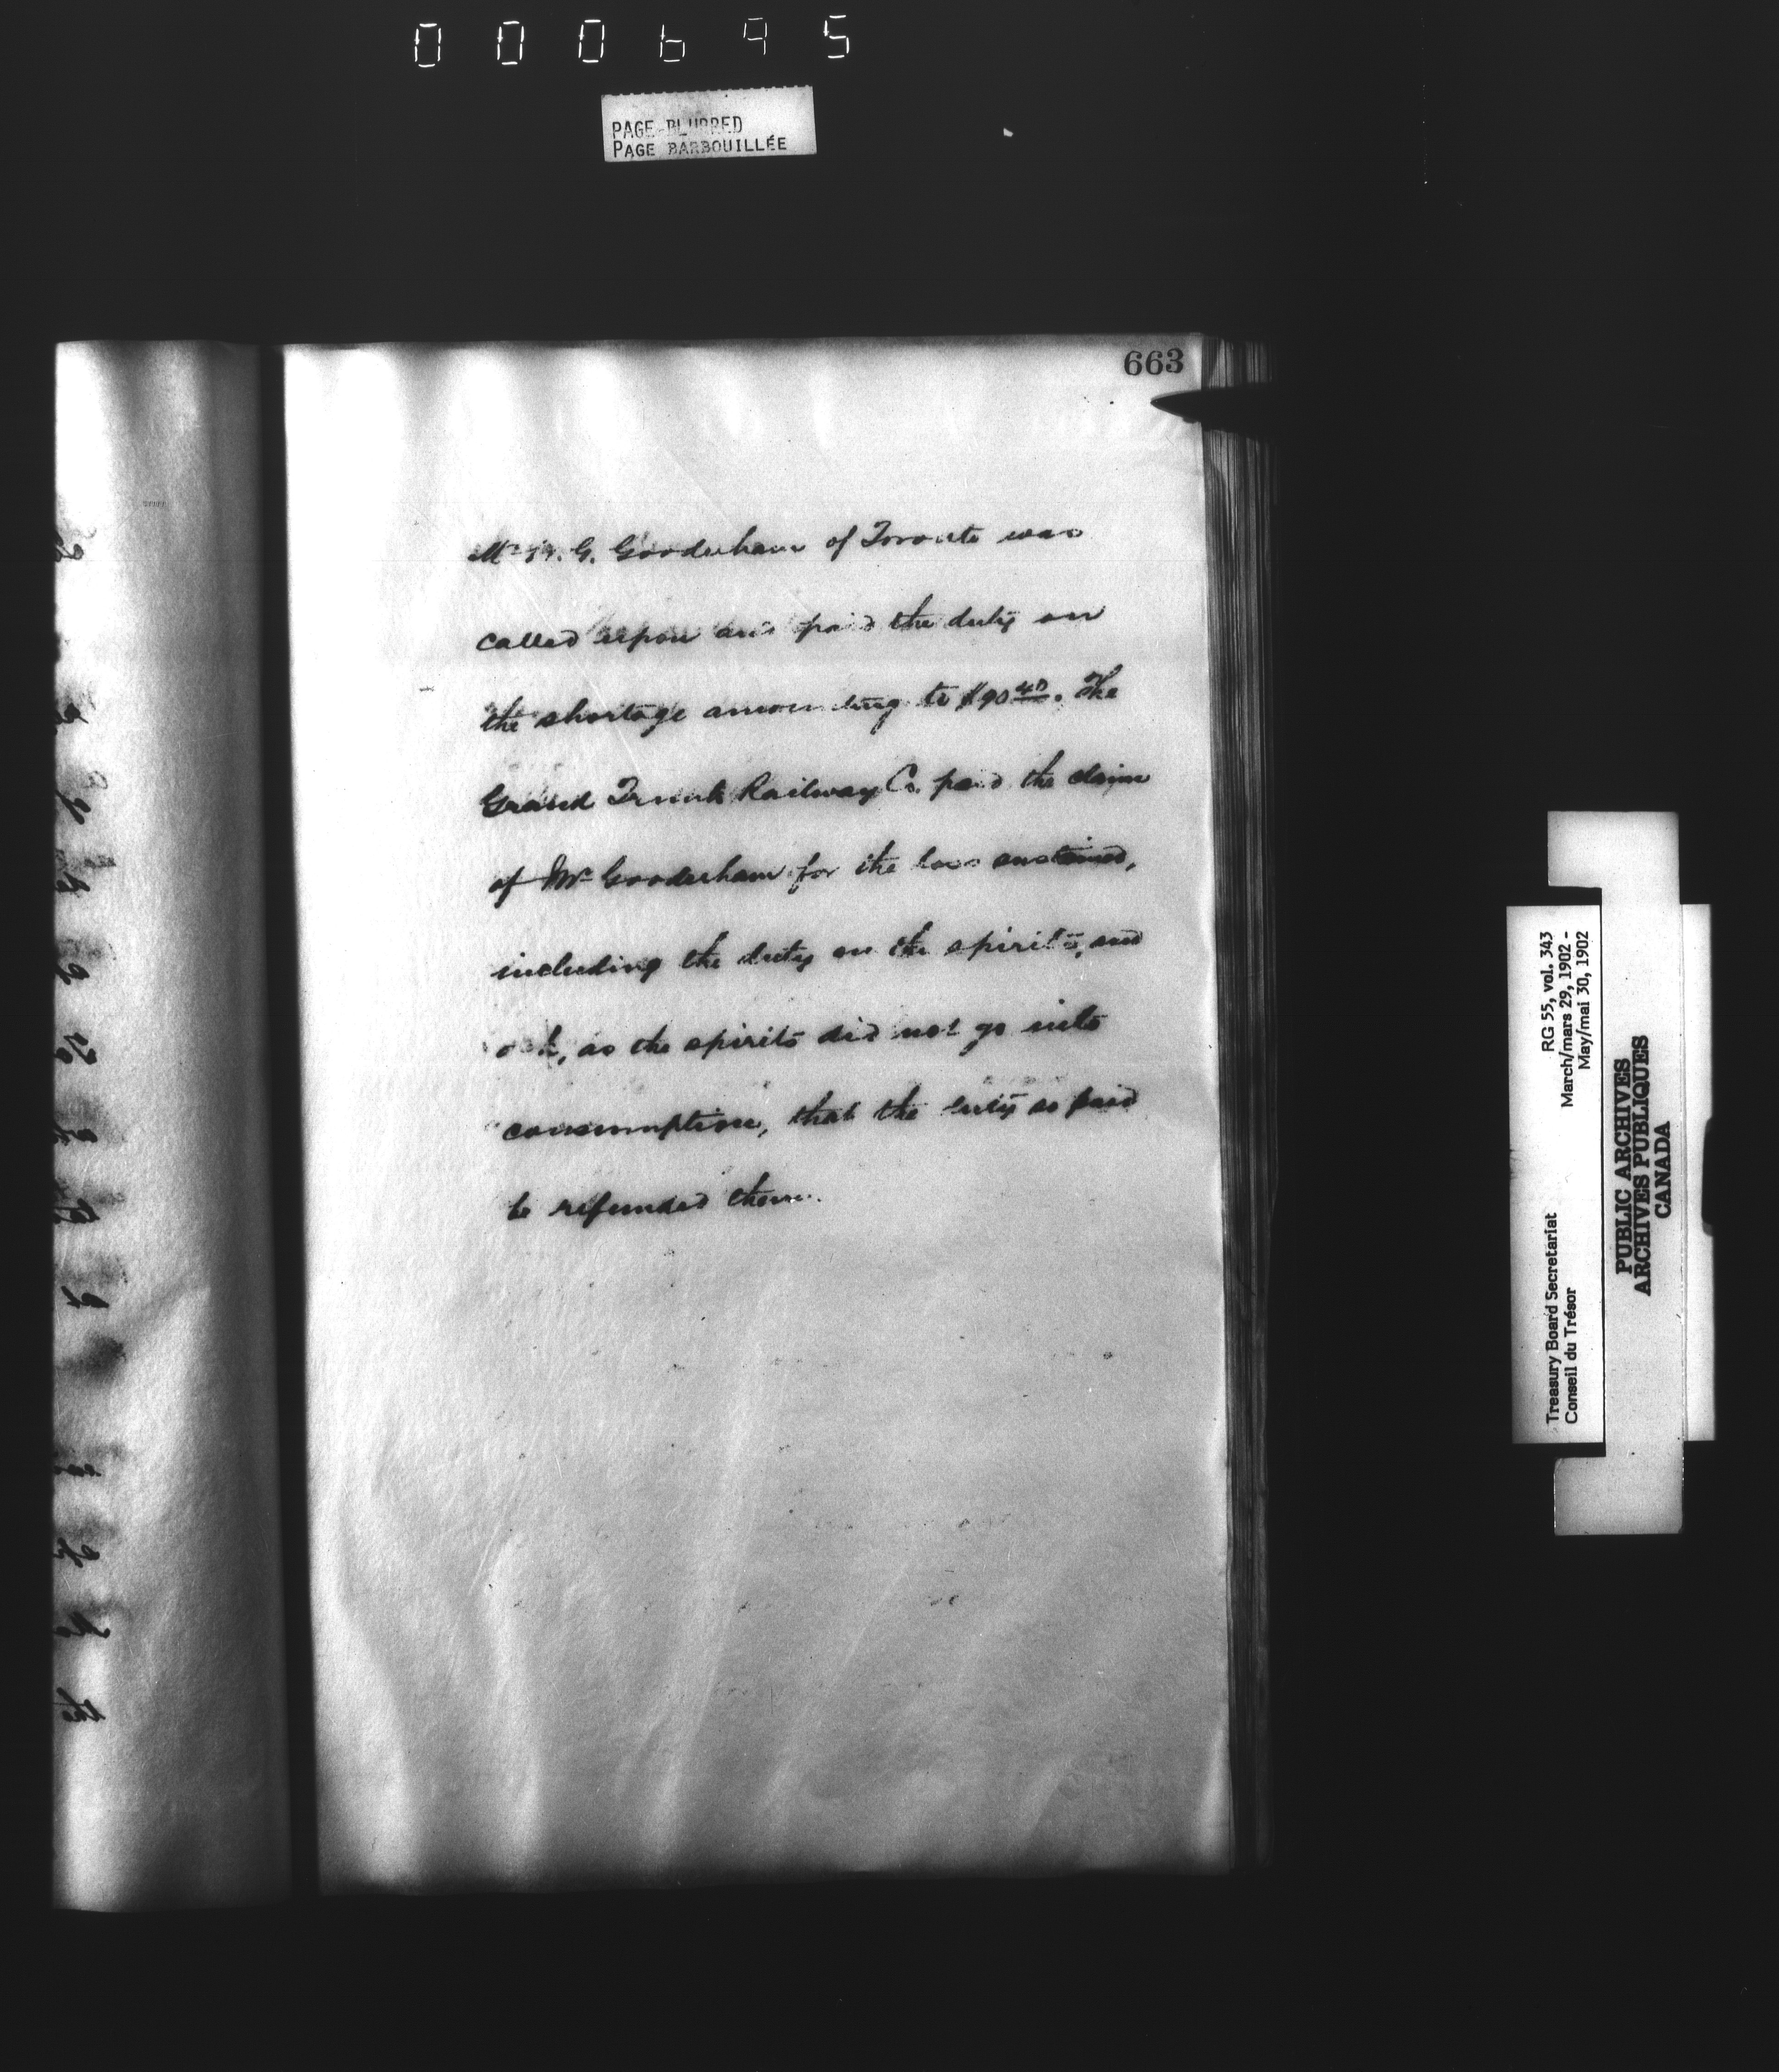 000695
PAGE BLURRED
PAGE BARBOUILLÉE
663
Mr W. G. Gooderham of Toronto was
called upon and paid the duty on
the shortage amounting to $90 40. The
Grand Trunk Railway Co. paid the claim
of Mr Gooderham for the loss sustained,
including the duty on the spirits, and
ask, as the spirits did not go into
consumption, that the duty so paid
be refunded them.
Treasury Board Secretariat RG 55, vol. 343
Conseil du Trésor March/mars 29, 1902 -
May/mai 30, 1902
PUBLIC ARCHIVES
ARCHIVES PUBLIQUES
CANADA